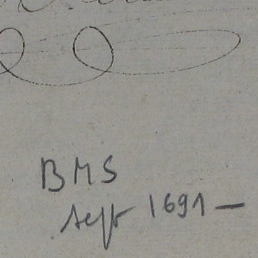 BMS
sept 1691 —